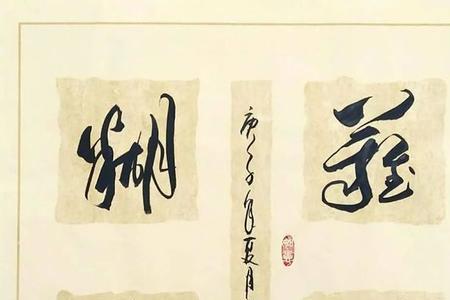 難
庚子年夏月
糊